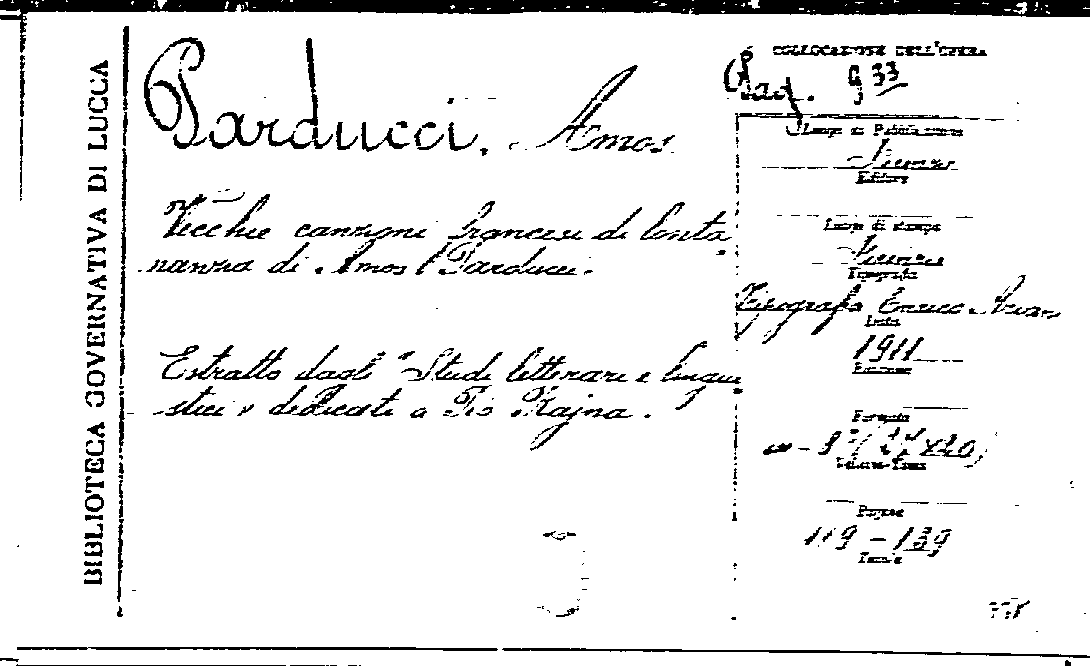 BIBLIOTECA GOVERNATIVA DI LUCCA
Parducci, Amos
Vecchie canzoni francesi di lonta
nanza di Amos Parducci.
Estratto dagli "Studi letterari e lingui
stici" dedicati a Pio Rajna.
COLLOCAZIONE DELL'OPERA
933
Luogo di Pubblicazione
Firenze
Editore
Luogo di stampa
Firenze
Tipografia
Tipografia Enrico Arian
Data
1911
Edizione
Formato
in-8° (27x20)
Volume-Tomo
Pagine
119-139
Tavole